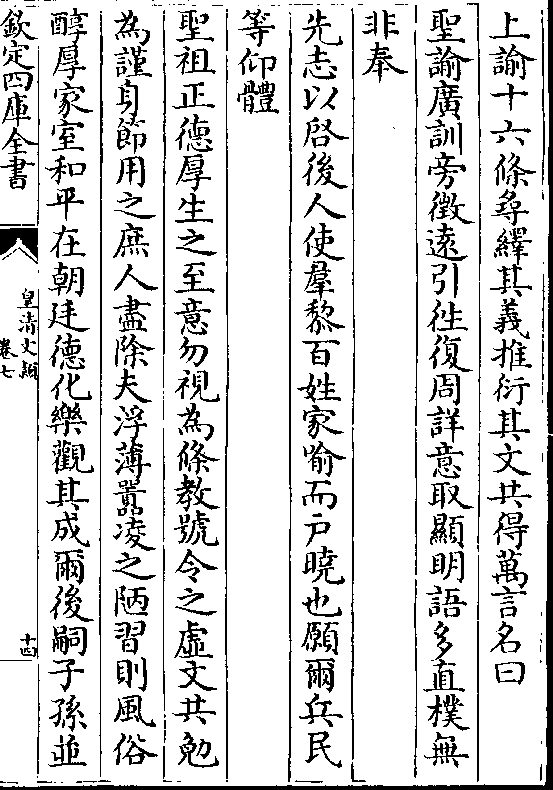 上諭十六條尋繹其義推衍其文共得萬言名曰
聖諭廣訓旁徵遠引往復周詳意取顯明語多直樸無
非奉
先志以啓後人使羣黎百姓家喻而户曉也願爾兵民
等仰體
聖祖正德厚生之至意勿視為條教號令之虛文共勉
為謹身節用之庶人盡除夫浮薄囂凌之陋習則風俗
醇厚家室和平在朝廷德化樂觀其成爾後嗣子孫並
欽定四庫全書
皇清文穎
卷七
十四